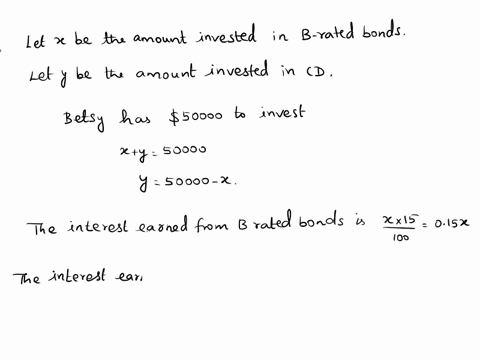 Let x be the amount invested in B-rated bonds.
Let y be the amount invested in CD.
Betsy has $50000 to invest
x+y = 50000
y = 50000-x.
The interest earned from B rated bonds is x×15/100 = 0.15x
The interest ear